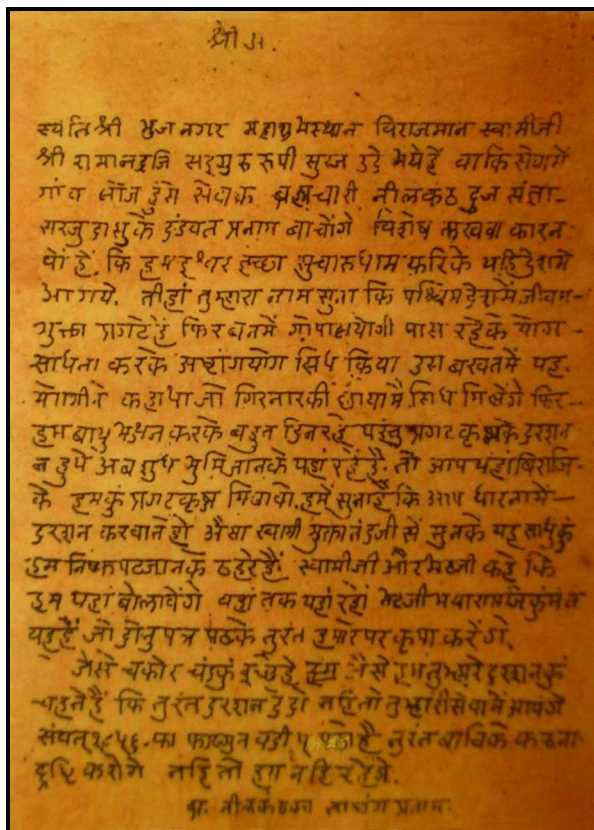 श्री
स्वति श्री भुज नगर महाशुभस्थान विराजमान स्वामीजी
श्री रामानंदजि सद्गुरु रुपी सुरज उदे भये हें वाकि सेवामें
गांव लोज हुंगे सेवाक ब्रह्मचारी नीलकंठ दुज संज्ञा-
सरजुदासुके दंडवत प्रनाम बाचोंगे विशेष लखवा कारन
यों हें. कि हम इश्वर इच्छा सुचारुधाम करिके यहि देशमे
आ गये. तीहां तुम्हारा नाम सुना कि पश्चिम देशमें जीवन-
मुक्ता प्रगटे हें फिर बनमें गोपालयोगी पास रहेके योग-
साधना करके अष्टांगयोग सिध किया उस बखतमें यह.
योगीने कहाथा जो गिरनारकी छायामै सिध मिलेंगे फिर-
हम बायु भक्षन करके बहुत दिन रहे परंतु प्रगट कृष्नके दरशन
न हुये अब शुध भुमि जानके यहां रहे है. तो आप यहां बिराजि-
के हमकुं प्रगट कृष्न मिलावो. हमें सुना हे कि आप धारनामें-
दरशन करवाते हो अैसा स्वामी मुक्तानंदजी सें सुनके यह साधकुं
हम निष्कपट जानके ठहेरे हैं. स्वामीजी और भटजी कहे कि
हम यहां बोलावेंगे वहां तक यहां रहो भटजी मयारामजिकुं
यह हैं जो दोनु पत्र पढके तुरंत हमारे पर कृपा करेंगे.
जैसे चकोर चंद्रकुं इच्छे हे तैसे हम तुम्हारे दरशनकुं
चहते हैं कि तुरंत दरशन देदो नहितो तुम्हारी सेवामें आयंगे
संवत् १८५६. का फाल्गुन वदी ५ है तुरंत बाचिके करुना-
द्रष्टि करोगे नहि तो हम नहि रहेंगे.
ब्र. नीलकंठका साष्टांग प्रनाम.